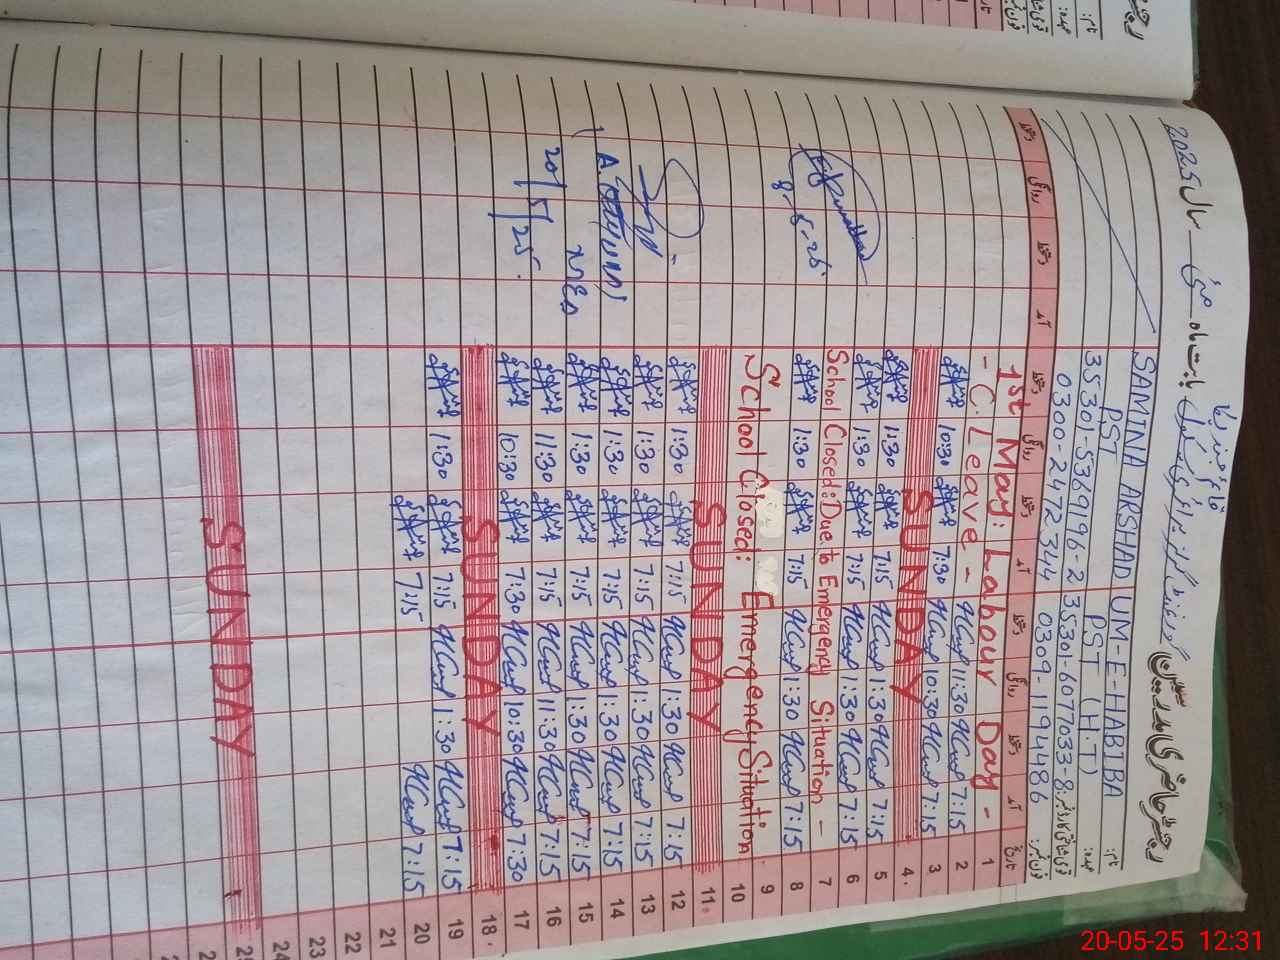 رجسٹر حاضری مدرسین گورنمنٹ گرلز پرائمری سکول بابت ماہ مئی سال 2025
نام: UM-E-HABIBA SAMINA ARSHAD
عہدہ: PST (H.T) PST
قومی شناختی کارڈ نمبر: 35301-6077033-8 35301-5369196-2
فون نمبر: 0309-1194486 0300-2472344
تاریخ آمد دستخط روانگی دستخط آمد دستخط روانگی دستخط آمد دستخط روانگی دستخط
1 1st May: Labour Day -
2 7:15 11:30 - C. Leave -
3 7:15 10:30 7:30 10:30
4 SUNDAY
5 7:15 1:30 7:15 1:30
6 7:15 1:30 7:15 1:30
7 School Closed: Due to Emergency Situation -
8 7:15 1:30 7:15 1:30
8-5-25
9
10 School Closed: Emergency Situation
11 SUNDAY
12 7:15 1:30 7:15 1:30
13 7:15 1:30 7:15 1:30
14 7:15 1:30 7:15 1:30
15 7:15 1:30 7:15 1:30
16 7:15 11:30 7:15 11:30
17 7:30 10:30 7:30 10:30
20/5/25
18 SUNDAY
19 7:15 1:30 7:15 1:30
20 7:15 7:15
21
22
23
24
25 SUNDAY
20-05-25 12:31